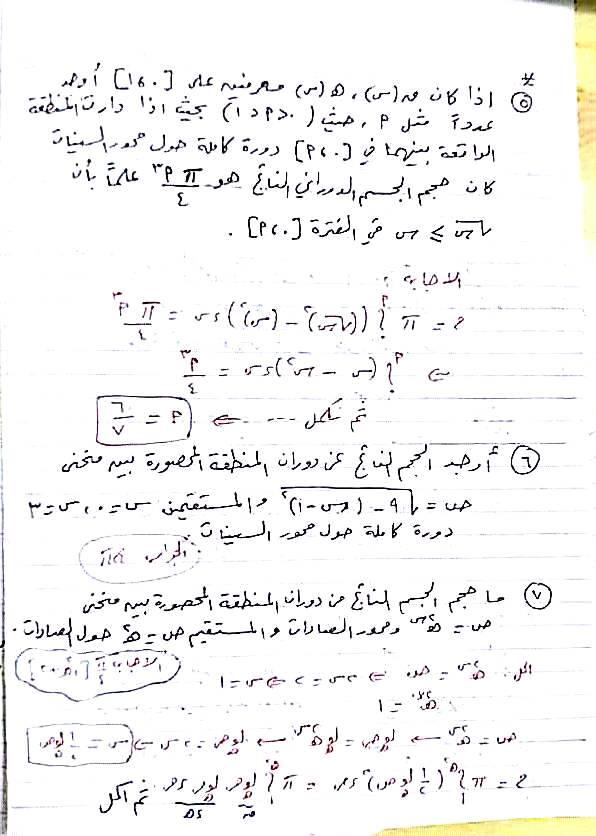 ⑤ اذا كان ق(س)، هـ(س) معرفتين على [١،٠] أوجد
عدداً مثل P، حيث (٠<P<١) بحيث اذا دارت المنطقة
الواقعة بينهما في [P،٠] دورة كاملة حول محور السينات
كان حجم الجسم الدوراني الناتج هو π P³/٤ علماً بأن
√س ≥ س في الفترة [P،٠].
الاجابة :
ح = π ∫ ((√س)² - (س)²) دس = π P³/٤
⇐ ∫ (س - س²) دس = P³/٤
ثم نكمل .... ⇐ P = ٦/٧
⑥ أوجد الحجم الناتج عن دوران المنطقة المحصورة بين منحنى
ص = √٩ - (س-١)² و المستقيمين س=٠، س=٣
دورة كاملة حول محور السينات.
الجواب
⑦ ما حجم الجسم الناتج من دوران المنطقة المحصورة بين منحنى
ص = هـ²س ومحور الصادات و المستقيم ص = هـ² حول الصادات.
الاجابة
الحل: ⇐ ٢س = ٢ ⇐ س = ١
ص = هـ²س ← لو ص = لو هـ²س ← لو ص = ٢س ⇐ س = ١/٢ لو ص
ح = π ∫ (١/٢ لو ص)² دص = π ∫ لو ص لو ص دص ثم أكمل